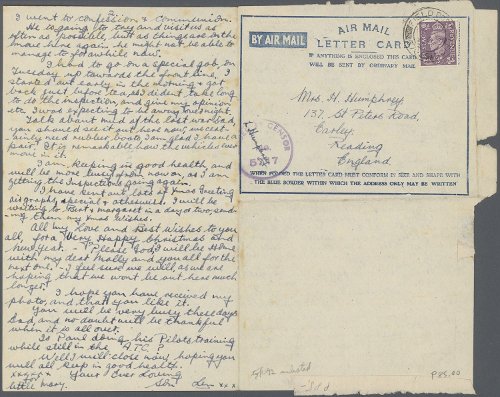 I went to confession & Communion.
He is going to try and visit us as
often as possible, but as things are on the
move here again he might not be able to
manage to for awhile now.
I had to go on a special job, on
Tuesday up towards the front line, I
started out early in the morning & got
back just before it and I didn't take long
to do the inspection, and give my opinion
etc. I was expecting to be away over night.
Talk about mud of the last war Dad,
you should see it out here now, we cert-
ainly need rubber boots, I'm glad I have a
pair. It is remarkable how the vehicles ever
move in it.
I am keeping in good health and
will be more busy from now on, as I am
getting the inspections going again.
I have sent out lots of Xmas Greeting
airgraphs, special & otherwise. I will be
writing to Bert & Margaret in a day or two, send-
ing them my Xmas Wishes.
All my Love and Best Wishes to you
all, for a Very Happy Christmas and
New Year. Please God, I will be Home
with my dear Mally and you all for the
next one. I feel sure we will, as we are
hoping that we wont be out here much
longer.
I hope you have received my
photo, and that you like it.
You will be very busy these days
Dad, and no doubt will be thankful
when it is all over.
Is Paul doing his Pilots training
while still in the A.T.C.?
Well I will close now, hoping you
will all keep in good health.
xxxxx Your Ever Loving
little Mary. Son Len xxx
BY AIR MAIL
AIR MAIL
LETTER CARD
IF ANYTHING IS ENCLOSED THIS CARD
WILL BE SENT BY ORDINARY MAIL.
Mrs. H. Humphrey,
137, St Peters Road,
Earley,
Reading
England
CENSOR
5747
L. Humphrey
WHEN FOLDED THE LETTER CARD MUST CONFORM IN SIZE AND SHAPE WITH
THE BLUE BORDER WITHIN WHICH THE ADDRESS ONLY MAY BE WRITTEN
P85,00